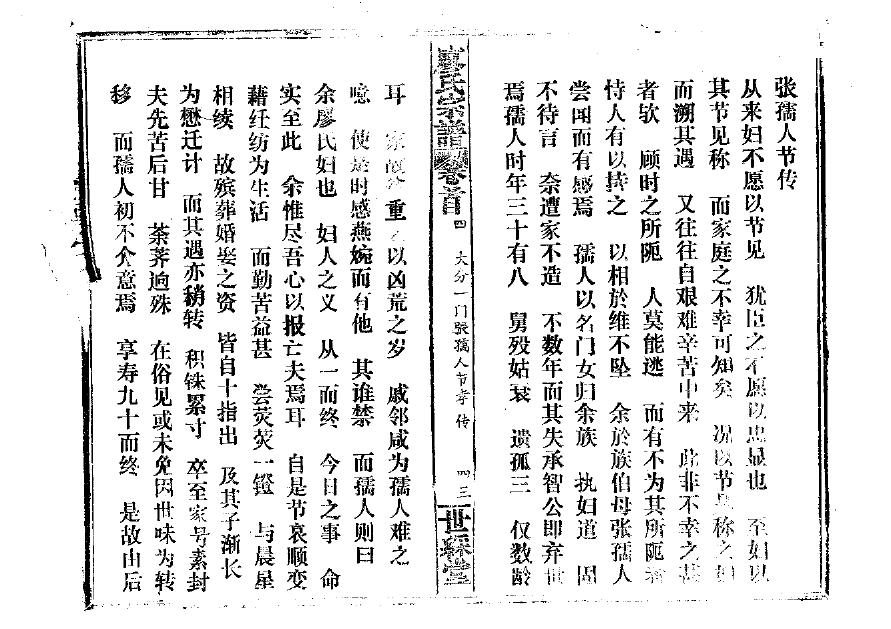 张孺人节传
从来妇不愿以节见 犹臣之不愿以忠显也 至妇以
其节见称 而家庭之不幸可知矣 况以节见称之妇
而溯其遇 又往往自艰难辛苦中来 此非不幸之甚
者欤 顾时之所阨 人莫能逃 而有不为其所阨者
恃人有以持之 以相於维不坠 余於族伯母张孺人
尝闻而有感焉 孺人以名门女归余族 执妇道 固
不待言 奈遭家不造 不数年而其失承智公即弃世
焉孺人时年三十有八 舅殁姑衰 遗孤三 仅数龄
廖氏宗谱 卷首 四 大分一门张孺人节孝传 四三 世䌽堂
耳 家 重 以凶荒之岁 戚邻咸为孺人难之
噫 使 时感燕婉而有他 其谁禁 而孺人则曰
余廖氏妇也 妇人之义 从一而终 今日之事 命
实至此 余惟尽吾心以报亡夫焉耳 自是节哀顺变
藉纤纺为生活 而勤苦益甚 尝荧荧一镫 与晨星
相续 故殡葬婚娶之资 皆自十指出 及其子渐长
为懋迁计 而其遇亦稍转 积铢累寸 卒至家号素封
夫先苦后甘 荼荠逈殊 在俗见或未免因世味为转
移 而孺人初不介意焉 享寿九十而终 是故由后